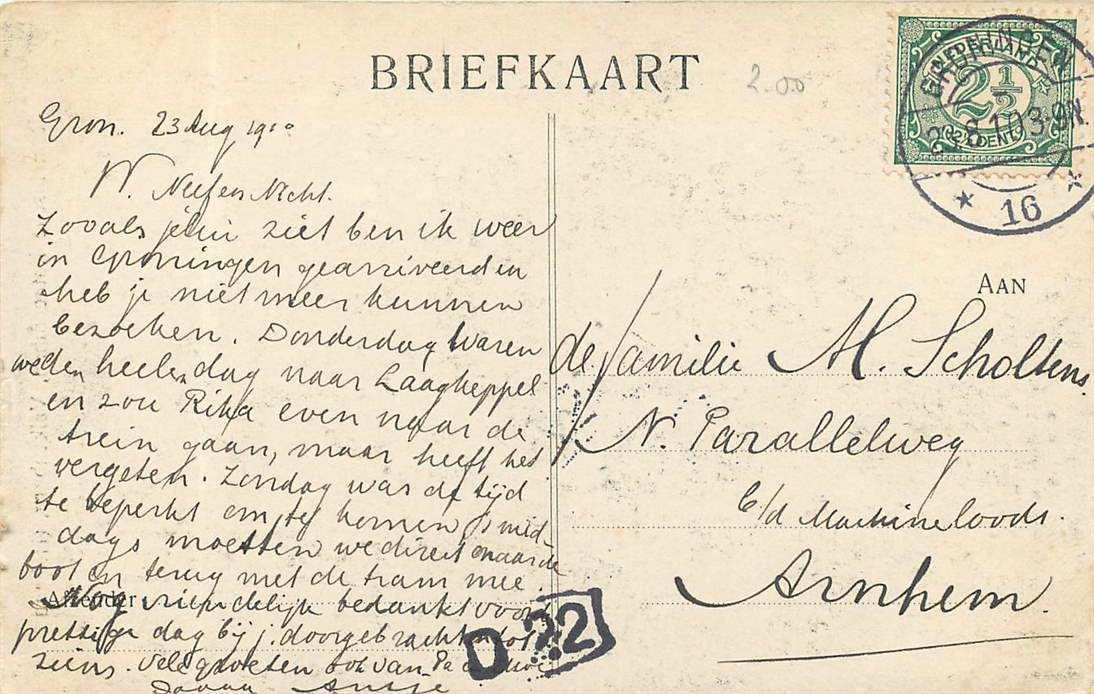 BRIEFKAART
2.00
NEDERLAND
2½
CENT
GRONINGEN
23.8.10 3-9N.
16
Gron. 23 Aug 1910
W. Neef en Nicht.
Zooals je ziet ben ik weer
in Groningen gearriveerd en
heb je niet meer kunnen
bezoeken. Donderdag waren
we den heelen dag naar Laagkeppel
en zou Rika even naar de
trein gaan, maar heeft het
vergeten. Zondag was de tijd
te beperkt om te komen, 's mid-
dags moesten we direct naar de
boot en terug met de tram mee.
Afzender
Nog vriendelijk bedankt voor
prettige dag bij j. doorgebracht en tot
ziens. Vele groeten ook van Pa en Moe
Antje
AAN
de familie M. Scholtens
N. Parallelweg
b/d Machineloods.
Arnhem.
D 22